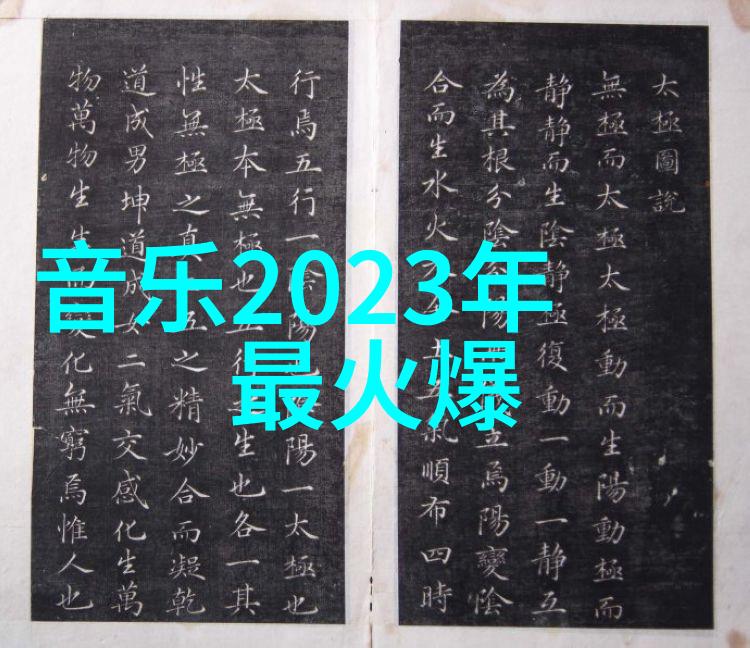 音乐2023年
最火爆
太極圖說
無極而太極太極動而生陽動極而
静静而生陰静極復動一動一静互
為其根分陰分陽立焉陽變陰
合而生水火土氣順布四時
行焉五行一陰陽陰陽一太極也
太極本無極也五行生也各一其
性無極之真五之精妙合而凝乾
道成男坤道成女二氣交感化生萬
物萬物生生而變化無窮焉惟人也